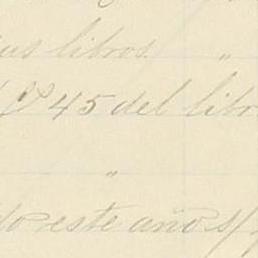 libros "
45 del libr
"
do este año s/